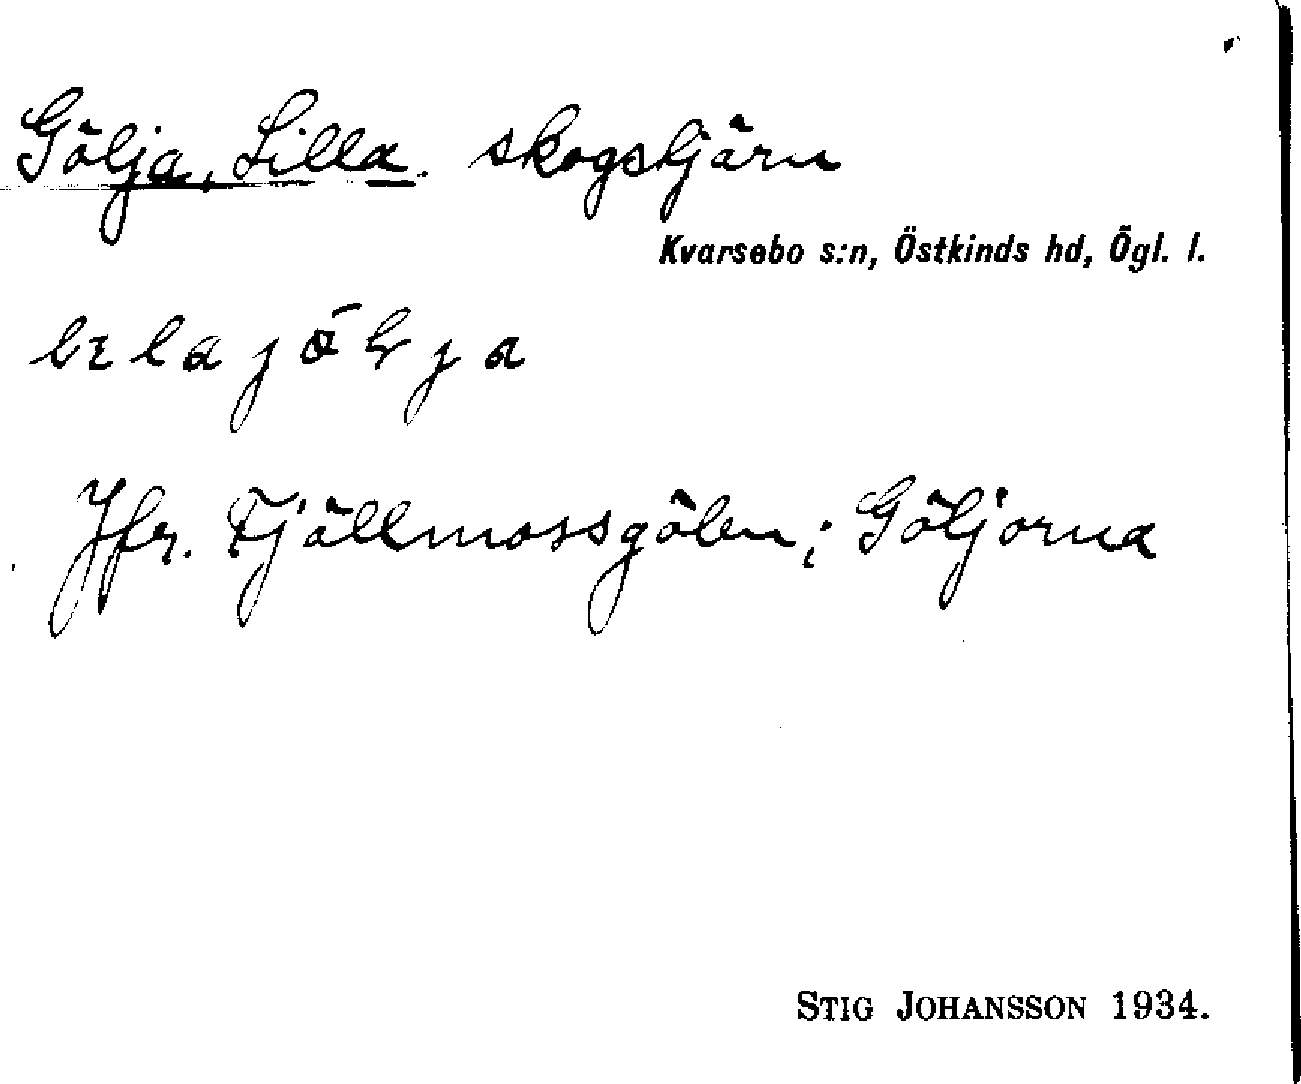 Gölja, Lilla. skogstjärn
Kvarsebo s:n, Östkinds hd, Ögl. l.
Jfr. Fjällmossgölen; Göljorna
STIG JOHANSSON 1934.